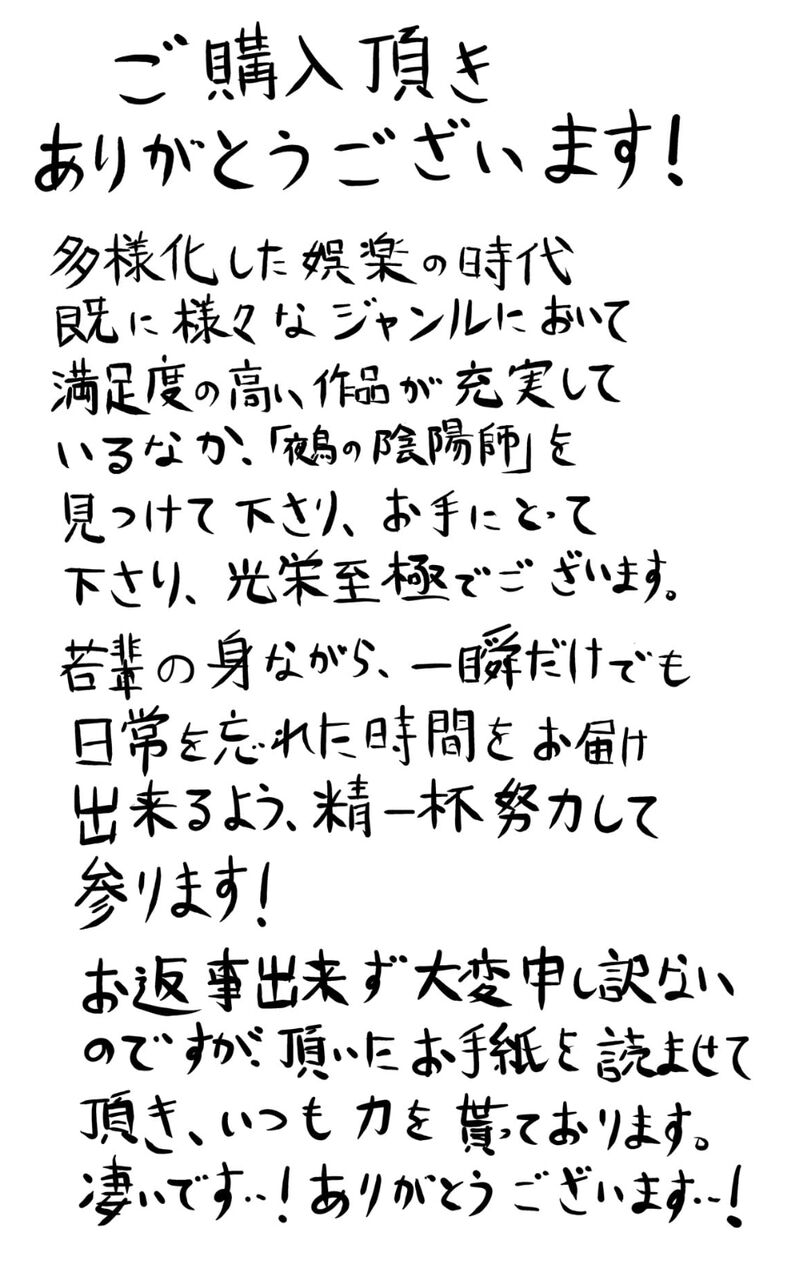 ご購入頂き
ありがとうございます!
多様化した娯楽の時代
既に様々なジャンルにおいて
満足度の高い作品が充実して
いるなか、「鵺の陰陽師」を
見つけて下さり、お手にとって
下さり、光栄至極でございます。
若輩の身ながら、一瞬だけでも
日常を忘れた時間をお届け
出来るよう、精一杯努力して
参ります!
お返事出来ず大変申し訳ない
のですが、頂いたお手紙を読ませて
頂き、いつも力を貰っております。
凄いです…!ありがとうございます…!